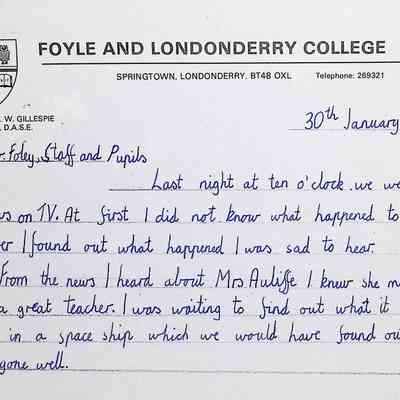 FOYLE AND LONDONDERRY COLLEGE
SPRINGTOWN, LONDONDERRY. BT48 OXL Telephone: 269321
W. GILLESPIE
D.A.S.E.
30th January
Foley, Staff and Pupils
Last night at ten o'clock we we
on TV. At first I did not know what happened to
I found out what happened I was sad to hear.
From the news I heard about Mrs Auliffe I knew she m
a great teacher. I was waiting to find out what it
in a space ship which we would have found ou
gone well.